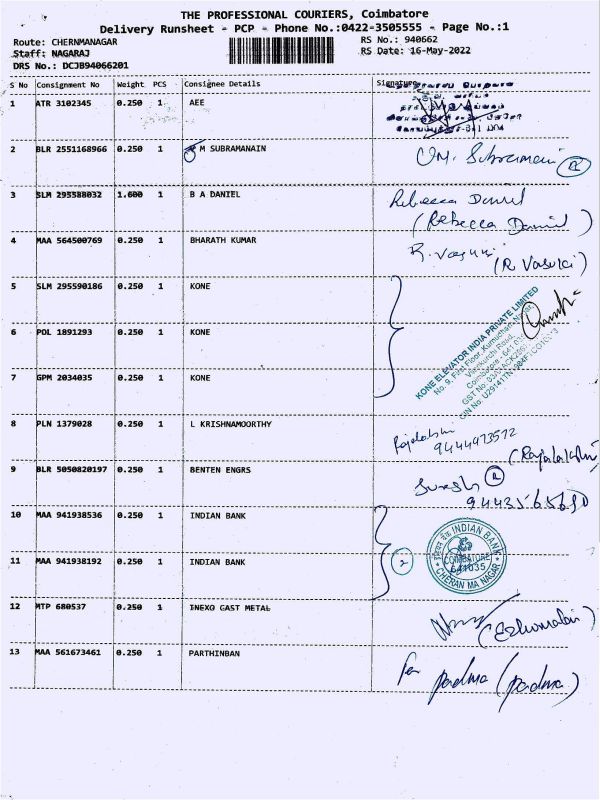 THE PROFESSIONAL COURIERS, Coimbatore
Delivery Runsheet - PCP - Phone No.:0422-3505555 - Page No.:1
Route: CHERNMANAGAR
RS No.: 940662
Staff: NAGARAJ
RS Date: 16-May-2022
DRS No.: DCJB94066201
S No Consignment No Weight PCS Consignee Details Signature
1 ATR 3102345 0.250 1 AEE
2 BLR 2551168966 0.250 1 M SUBRAMANAIN
3 SLM 295588032 1.600 1 B A DANIEL Rebecca Daniel
(Rebecca Daniel)
4 MAA 564500769 0.250 1 BHARATH KUMAR R. Vasuki
(R. Vasuki)
5 SLM 295590186 0.250 1 KONE
KONE ELEVATOR INDIA PRIVATE LIMITED
No. 9, First Floor, Kumudham Nagar
Vilankurchi Road,
Coimbatore - 641 035
6 POL 1891293 0.250 1 KONE
7 GPM 2034035 0.250 1 KONE
8 PLN 1379028 0.250 1 L KRISHNAMOORTHY Rajalakshmi
9444973572
(Rajalakshmi)
9 BLR 5050820197 0.250 1 BENTEN ENGRS Suresh R
9443565690
10 MAA 941938536 0.250 1 INDIAN BANK
INDIAN BANK
COIMBATORE
641035
CHERAN MA NAGAR
11 MAA 941938192 0.250 1 INDIAN BANK 2
12 MTP 680537 0.250 1 INEXO CAST METAL (Ezhumalai)
13 MAA 561673461 0.250 1 PARTHINBAN For Padma (Padma)